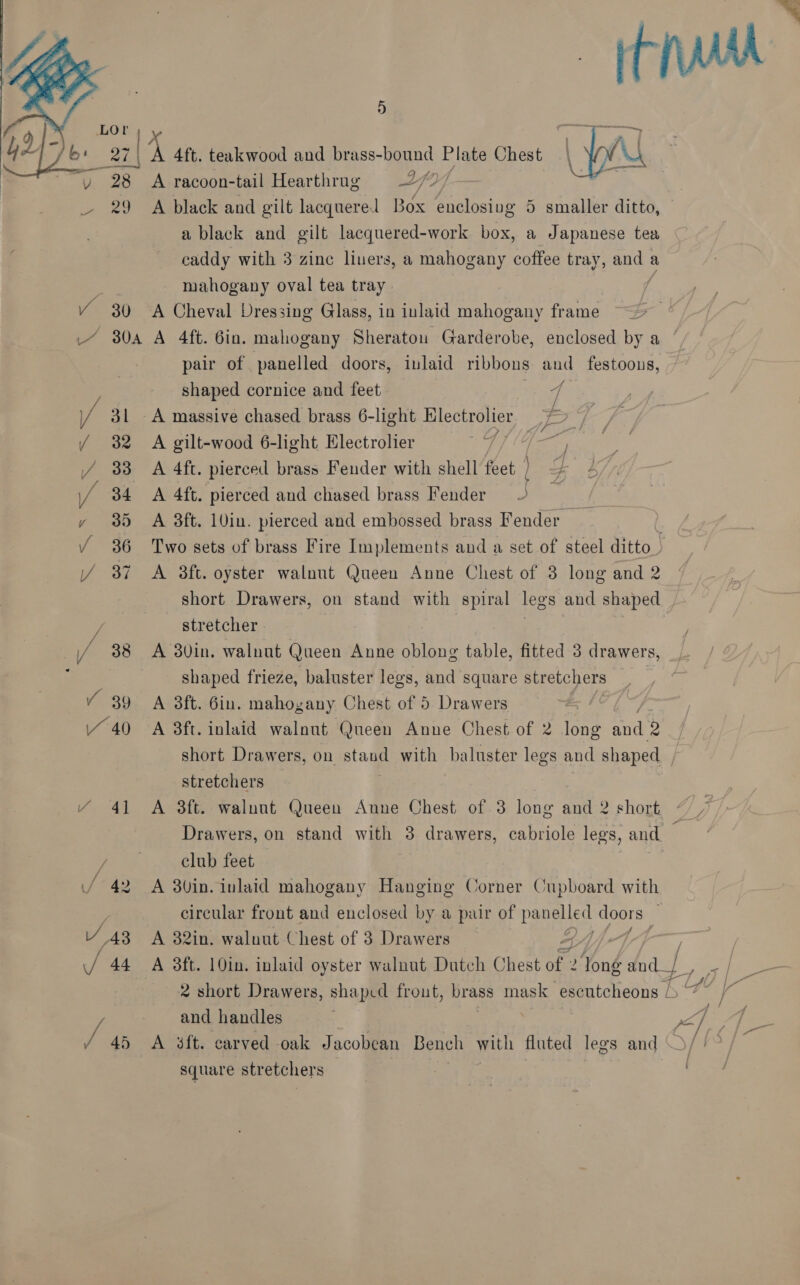 5
LOT
27 A 4ft. teakwood and brass-bound Plate Chest
28 A racoon-tail Hearthrug
29 A black and gilt lacquered Box enclosing 5 smaller ditto,
a black and gilt lacquered-work box, a Japanese tea
caddy with 3 zinc liners, a mahogany coffee tray, and a
mahogany oval tea tray
30 A Cheval Dressing Glass, in inlaid mahogany frame
30A A 4ft. 6in. mahogany Sheraton Garderobe, enclosed by a
pair of panelled doors, inlaid ribbons and festoons,
shaped cornice and feet
31 A massive chased brass 6-light Electrolier
32 A gilt-wood 6-light Electrolier
33 A 4ft. pierced brass Fender with shell feet
34 A 4ft. pierced and chased brass Fender
35 A 3ft. 10in. pierced and embossed brass Fender
36 Two sets of brass Fire Implements and a set of steel ditto
37 A 3ft. oyster walnut Queen Anne Chest of 3 long and 2
short Drawers, on stand with spiral legs and shaped
stretcher
38 A 30in. walnut Queen Anne oblong table, fitted 3 drawers,
shaped frieze, baluster legs, and square stretchers
39 A 3ft. 6in. mahogany Chest of 5 Drawers
40 A 3ft. inlaid walnut Queen Anne Chest of 2 long and 2
short Drawers, on stand with baluster legs and shaped
stretchers
41 A 3ft. walnut Queen Anne Chest of 3 long and 2 short
Drawers, on stand with 3 drawers, cabriole legs, and
club feet
42 A 30in. inlaid mahogany Hanging Corner Cupboard with
circular front and enclosed by a pair of panelled doors
43 A 32in. walnut Chest of 3 Drawers
44 A 3ft. 10in. inlaid oyster walnut Dutch Chest of 2 long and
2 short Drawers, shaped front, brass mask escutcheons
and handles
45 A 3ft. carved oak Jacobean Bench with fluted legs and
square stretchers